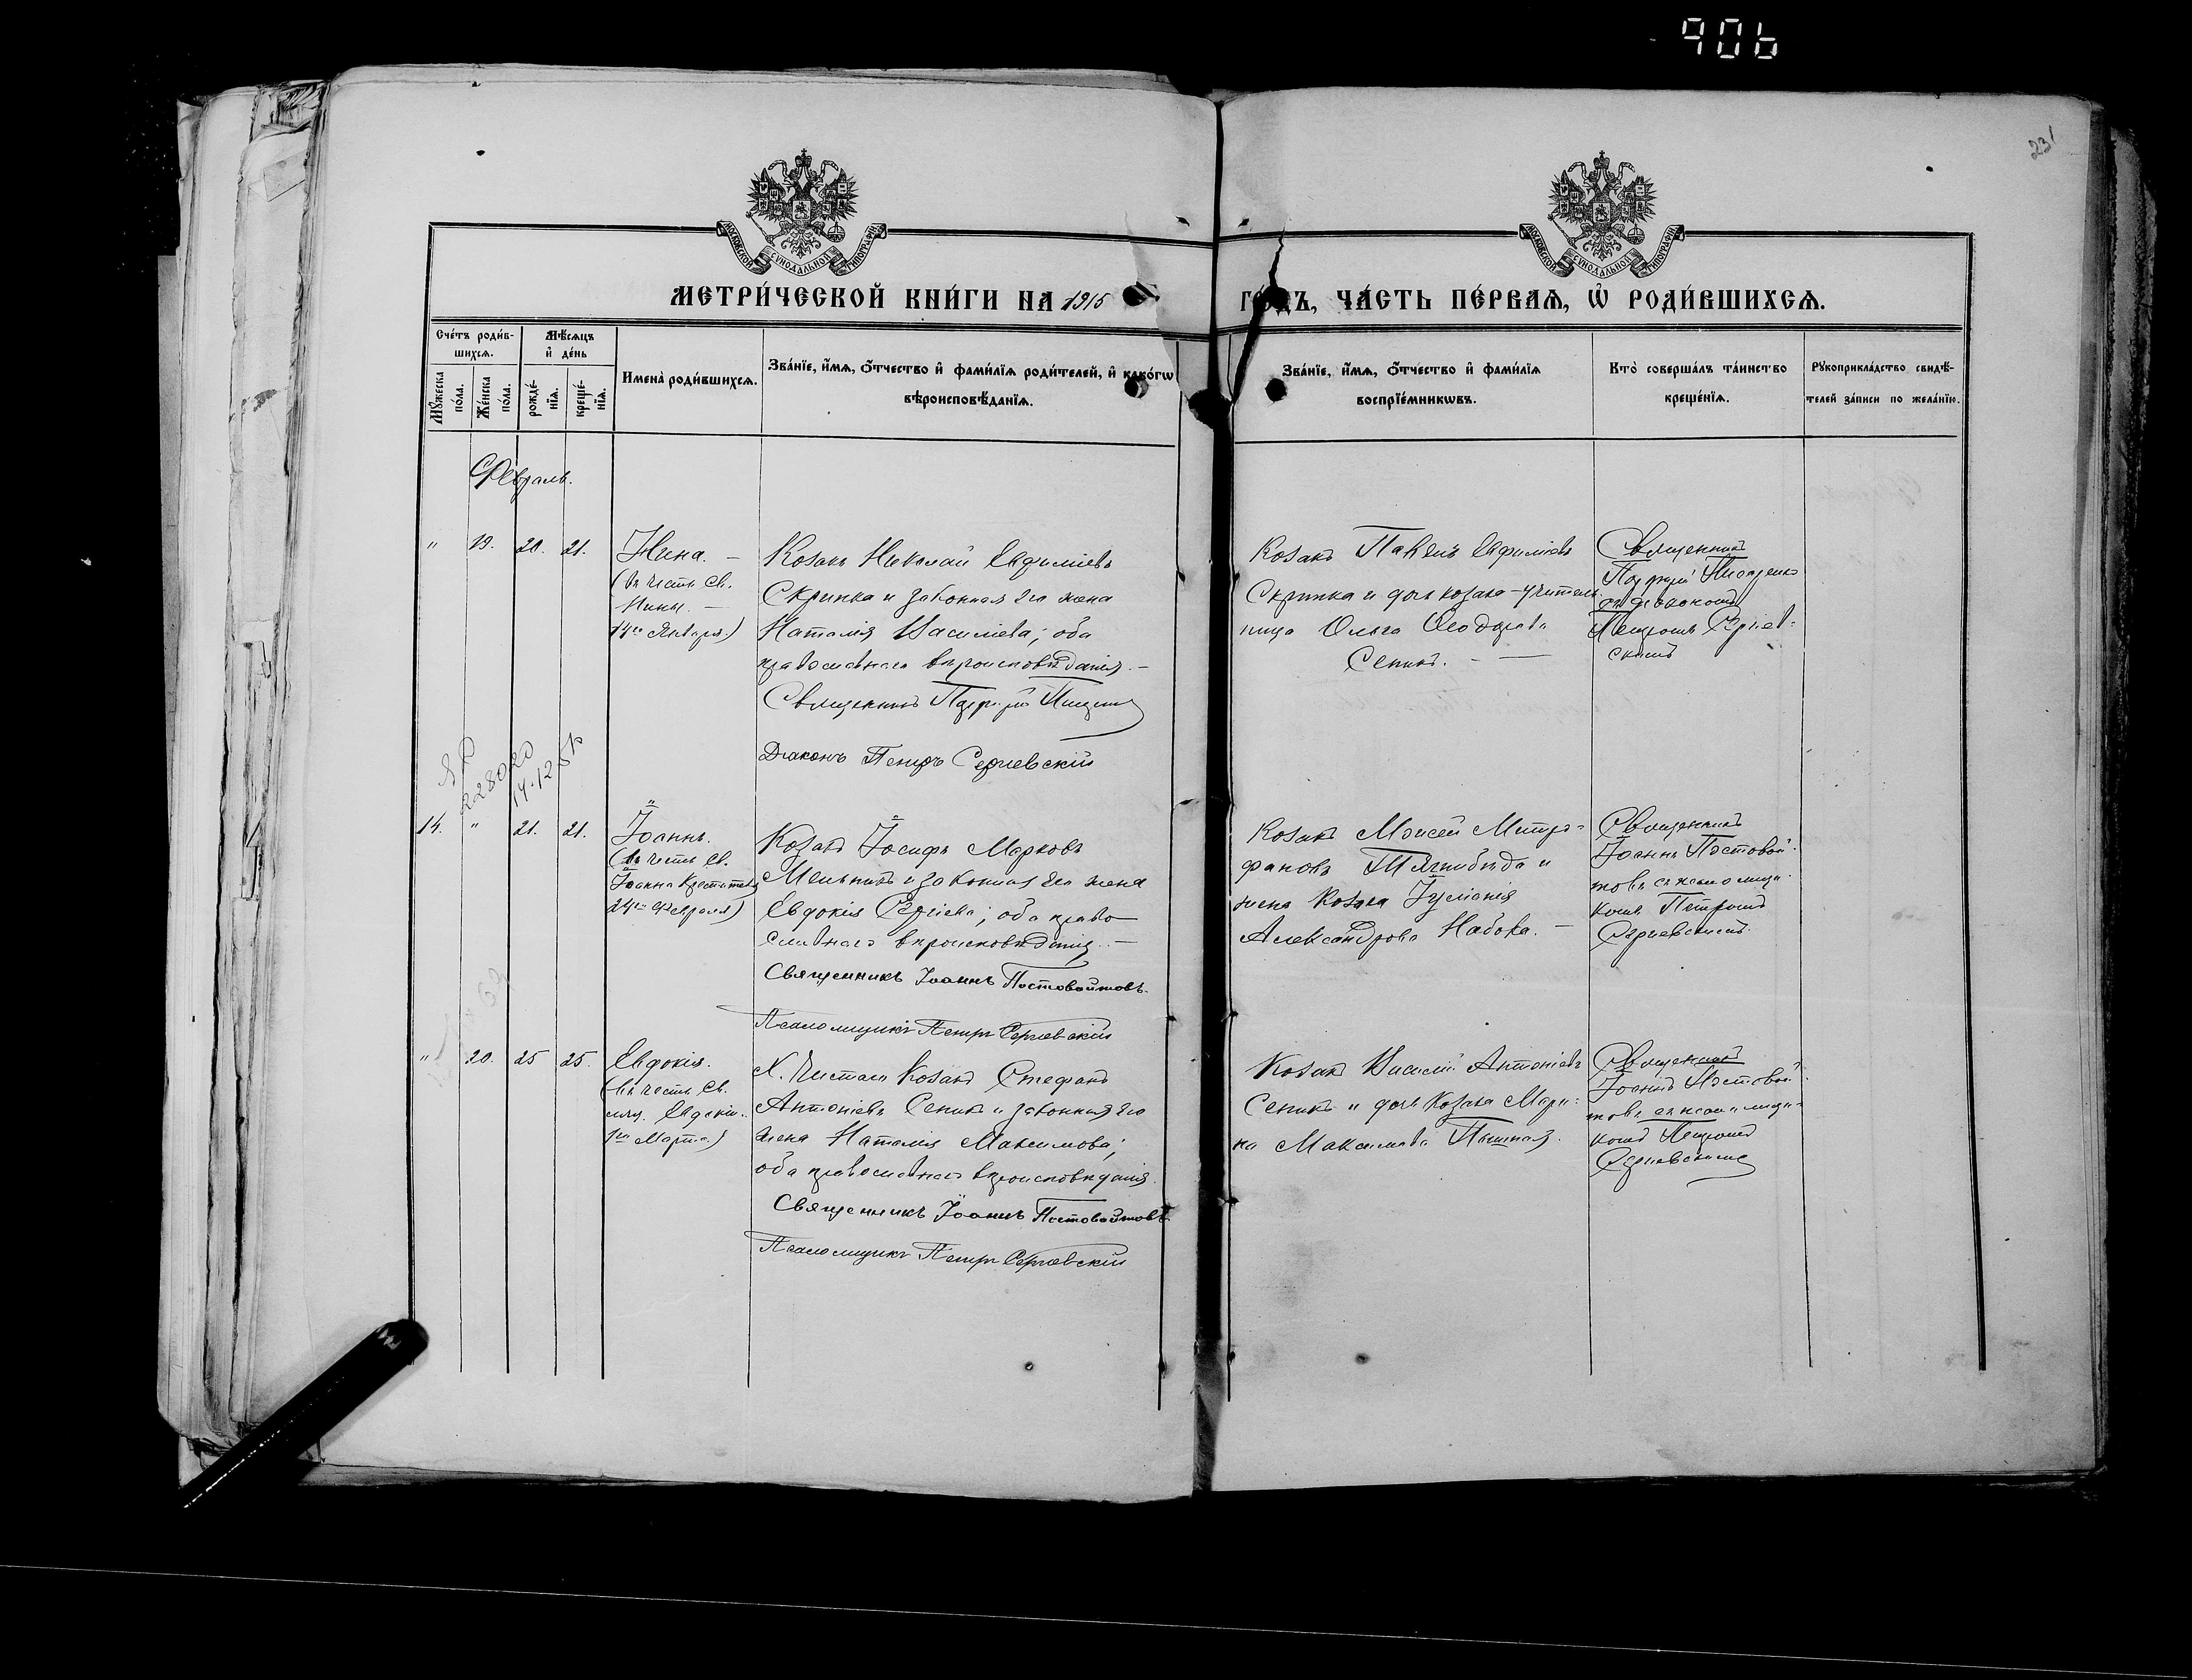 906
231
МОСКОВСКОЙ СѴНОДАЛЬНОЙ ТИПОГРАФІИ
МОСКОВСКОЙ СѴНОДАЛЬНОЙ ТИПОГРАФІИ
МЕТРИ́ЧЕСКОЙ КНИ́ГИ НА 1915
ГО́ДЪ, ЧА́СТЬ ПЕ́РВАѦ, Ѡ҆ РОДИ́ВШИХСѦ.
Сче́тъ роди́в-
шихсѧ.
Мꙋ́жеска по́ла.
Же́нска по́ла.
Мѣ́сѧцъ
и҆ де́нь
рожде́-
нїѧ.
креще́-
нїѧ.
Имена̀ роди́вшихсѧ.
Зва́нїе, и҆́мѧ, ѻ҆́тчество и҆ фами́лїѧ роди́телей, и҆ како́гѡ
вѣроисповѣ́данїѧ.
Зва́нїе, и҆́мѧ, ѻ҆́тчество и҆ фами́лїѧ
воспрїе́мникѡвъ.
Кто̀ соверша́лъ та́инство
креще́нїѧ.
Рꙋкоприкла́дство свидѣ́-
телей за́писи по жела́нїю.
Февраль.
" 19. 20. 21.
Нина. —
(въ честь св.
Нины. —
14го Января.)
Козакъ Николай Евфиміевъ
Скрипка и законная его жена
Наталія Васильева; оба
православнаго вѣроисповѣданія. —
Священникъ
Діаконъ Петръ Сергіевскій
Козакъ Павелъ Евфиміевъ
Скрипка и дочь козака - учитель-
ница Ольга Ѳеодорова
Сепикъ. —
Священникъ
съ діакономъ
Петромъ Сергіев-
скимъ
228020
14.12.51
14. " 21. 21.
Іоаннъ.
(въ честь св.
Іоанна Крестителя
24го Февраля)
Козакъ Іосифъ Марковъ
Мельникъ и законная его жена
Евдокія Сергіева; оба право-
славнаго вѣроисповѣданія. —
Священникъ Іоаннъ Постовойтовъ.
Псаломщикъ Петръ Сергіевскій
Козакъ Моисей Митро-
фановъ Тягнибѣда и
жена козака Іуліанія
Александрова Набока. —
Священникъ
Іоаннъ Постовой-
товъ съ псаломщи-
комъ Петромъ
Сергіевскимъ.
" 20. 25 25.
Евдокія.
(въ честь св.
муч. Евдокіи.
1го Марта.)
Х. Чистаго Козакъ Стефанъ
Антоніевъ Сепикъ и законная его
жена Наталія Максимова;
оба православнаго вѣроисповѣданія.
Священникъ Іоаннъ Постовойтовъ.
Псаломщикъ Петръ Сергіевскій
Козакъ Василій Антоніевъ
Сепикъ и дочь козака Мари-
на Максимова
Священникъ
Іоаннъ Постовой-
товъ съ псаломщи-
комъ Петромъ
Сергіевскимъ